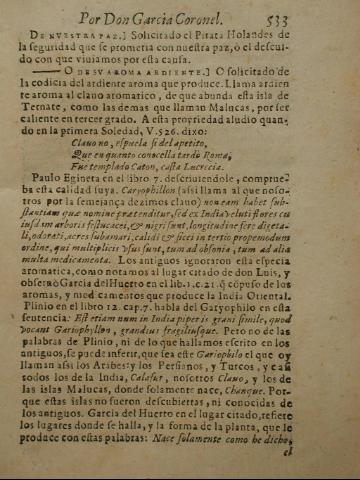 Por Don Garcia Coronel. 533
DE NVESTRA PAZ.] Solicitado el Pirata Holandes de
la seguridad que se prometia con nuestra paz, ò el descui-
do con que viuiamos por esta causa.
—— O DE SV AROMA ARDIENTE.] O solicitado de
la codicia del ardiente aroma que produce. Llama ardien
te aroma al clauo aromatico, de que abunda esta isla de
Ternate, como las demas que llaman Malucas, por ser
caliente en tercer grado. A esta propriedad aludio quan-
do en la primera Soledad, V. 526. dixo:
Clauo no, espuela si del apetito,
Que en quanto conocella tardò Roma,
Fue templado Caton, casta Lucrecia.
Paulo Egineta en el libro 7. descriuiendole, comprue-
ba esta calidad suya. Caryophillon (assi llama al que noso-
tros por la semejança dezimos clauo) non eam habet sub-
stantiam quæ nomine prætenditur, sed ex India veluti flores cu
iusdam arboris festucacei, & nigri sunt, longitudine fere digita-
li, odorati, acres subamari, calidi & sicci in tertio propemodum
ordine, qui multiplici vsui sunt, tum ad obsonia, tum ad alia
multa medicamenta. Los antiguos ignoraron esta especia
aromatica, como notamos al lugar citado de don Luis, y
obseruò Garcia del Huerto en el lib. 1. c. 21. q̃ cõpuso de los
aromas, y medicamentos que produce la India Oriental.
Plinio en el libro 12. cap. 7. habla del Garyophilo en esta
sentencia: Est etiam num in India piperis grani simile, quod
vocant Gariophyllon, grandius fragiliusque. Pero no de las
palabras de Plinio, ni de lo que hallamos escrito en los
antiguos, se puede inferir, que sea este Gariophilo el que oy
llaman assi los Arabes: y los Persianos, y Turcos, y casi
todos los de la India, Calafur, nosotros Clauo, y los de
las islas Malucas, donde solamente nace, Chanque. Por-
que estas islas no fueron descubiertas, ni conocidas de
los antiguos. Garcia del Huerto en el lugar citado, refiere
los lugares donde se halla, y la forma de la planta, que le
produce con estas palabras: Nace solamente como he dicho,
el